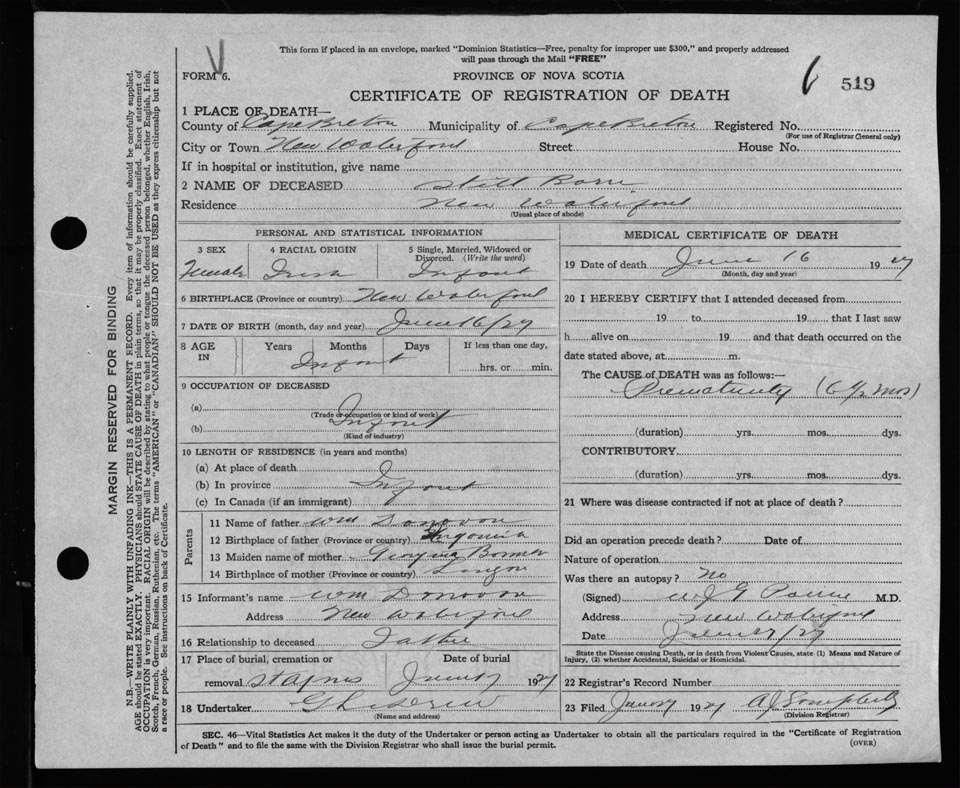 This form if placed in an envelope, marked "Dominion Statistics—Free, penalty for improper use $300," and properly addressed
will pass through the Mail "FREE"
FORM 6.
PROVINCE OF NOVA SCOTIA
519
CERTIFICATE OF REGISTRATION OF DEATH
1 PLACE OF DEATH—
County of Cape Breton Municipality of Cape Breton Registered No.
(For use of Registrar General only)
City or Town New Waterford Street House No.
If in hospital or institution, give name
2 NAME OF DECEASED Still Born
Residence New Waterford
(Usual place of abode)
PERSONAL AND STATISTICAL INFORMATION
3 SEX 4 RACIAL ORIGIN 5 Single, Married, Widowed or
Divorced. (Write the word)
Female Irish Infant
6 BIRTHPLACE (Province or country) New Waterford
7 DATE OF BIRTH (month, day and year) June 16/27
8 AGE IN Years Months Days If less than one day,
Infant hrs. or min.
9 OCCUPATION OF DECEASED
(a)
(Trade or occupation or kind of work)
Infant
(b)
(Kind of industry)
10 LENGTH OF RESIDENCE (in years and months)
(a) At place of death
(b) In province Infant
(c) In Canada (if an immigrant)
Parents
11 Name of father Wm Donovon
12 Birthplace of father (Province or country)
13 Maiden name of mother
14 Birthplace of mother (Province or country) Lingan
15 Informant's name Wm Donovon
Address New Waterford
16 Relationship to deceased Father
17 Place of burial, cremation or Date of burial
removal June 17 1927
18 Undertaker
(Name and address)
MEDICAL CERTIFICATE OF DEATH
19 Date of death June 16 1927
(Month, day and year)
20 I HEREBY CERTIFY that I attended deceased from
19 to 19 that I last saw
h alive on 19 and that death occurred on the
date stated above, at m.
The CAUSE of DEATH was as follows:—
Prematurity (6 1/2 mos)
(duration) yrs. mos. dys.
CONTRIBUTORY
(duration) yrs. mos. dys.
21 Where was disease contracted if not at place of death?
Did an operation precede death? Date of
Nature of operation
Was there an autopsy? No
(Signed) M.D.
Address New Waterford
Date
State the Disease causing Death, or in death from Violent Causes, state (1) Means and Nature of
Injury, (2) whether Accidental, Suicidal or Homicidal.
22 Registrar's Record Number
23 Filed 1927
(Division Registrar)
SEC. 46—Vital Statistics Act makes it the duty of the Undertaker or person acting as Undertaker to obtain all the particulars required in the "Certificate of Registration
of Death" and to file the same with the Division Registrar who shall issue the burial permit.
(OVER)
MARGIN RESERVED FOR BINDING
N.B.—WRITE PLAINLY WITH UNFADING INK—THIS IS A PERMANENT RECORD. Every item of information should be carefully supplied.
AGE should be stated EXACTLY. PHYSICIANS should STATE CAUSE OF DEATH in plain terms, so that it may be properly classified. Exact statement of
OCCUPATION is very important. RACIAL ORIGIN will be described by stating to what people or tongue the deceased person belonged, whether English, Irish,
Scotch, French, German, Russian, Ruthenian, etc. The terms "AMERICAN" or "CANADIAN" SHOULD NOT BE USED as they express citizenship but not
a race or people. See instructions on back of Certificate.